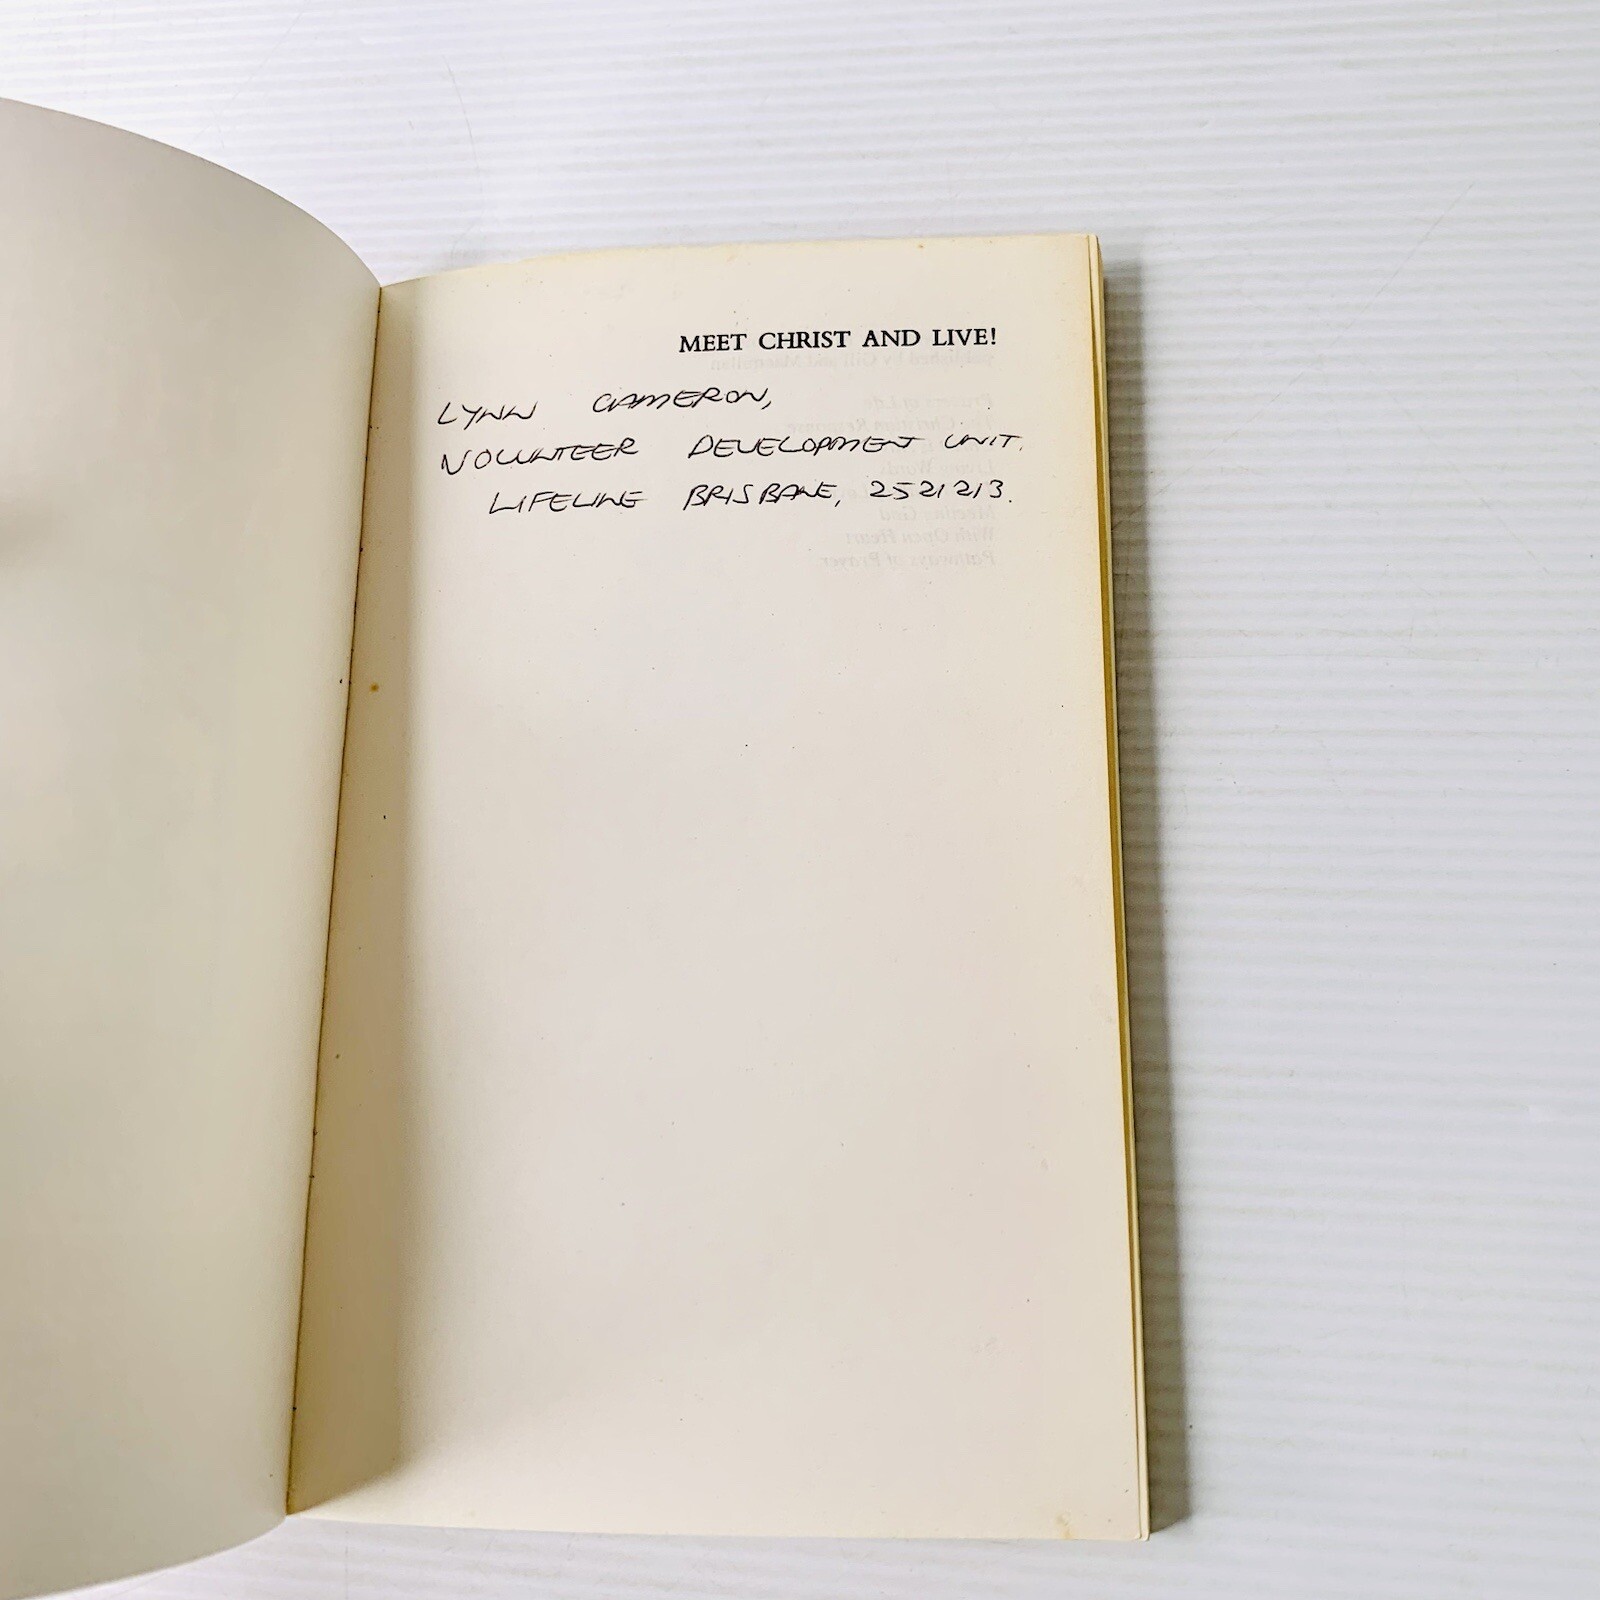 MEET CHRIST AND LIVE!
LYNN CAMERON,
VOLUNTEER DEVELOPMENT UNIT.
LIFELINE BRISBANE, 2521213.